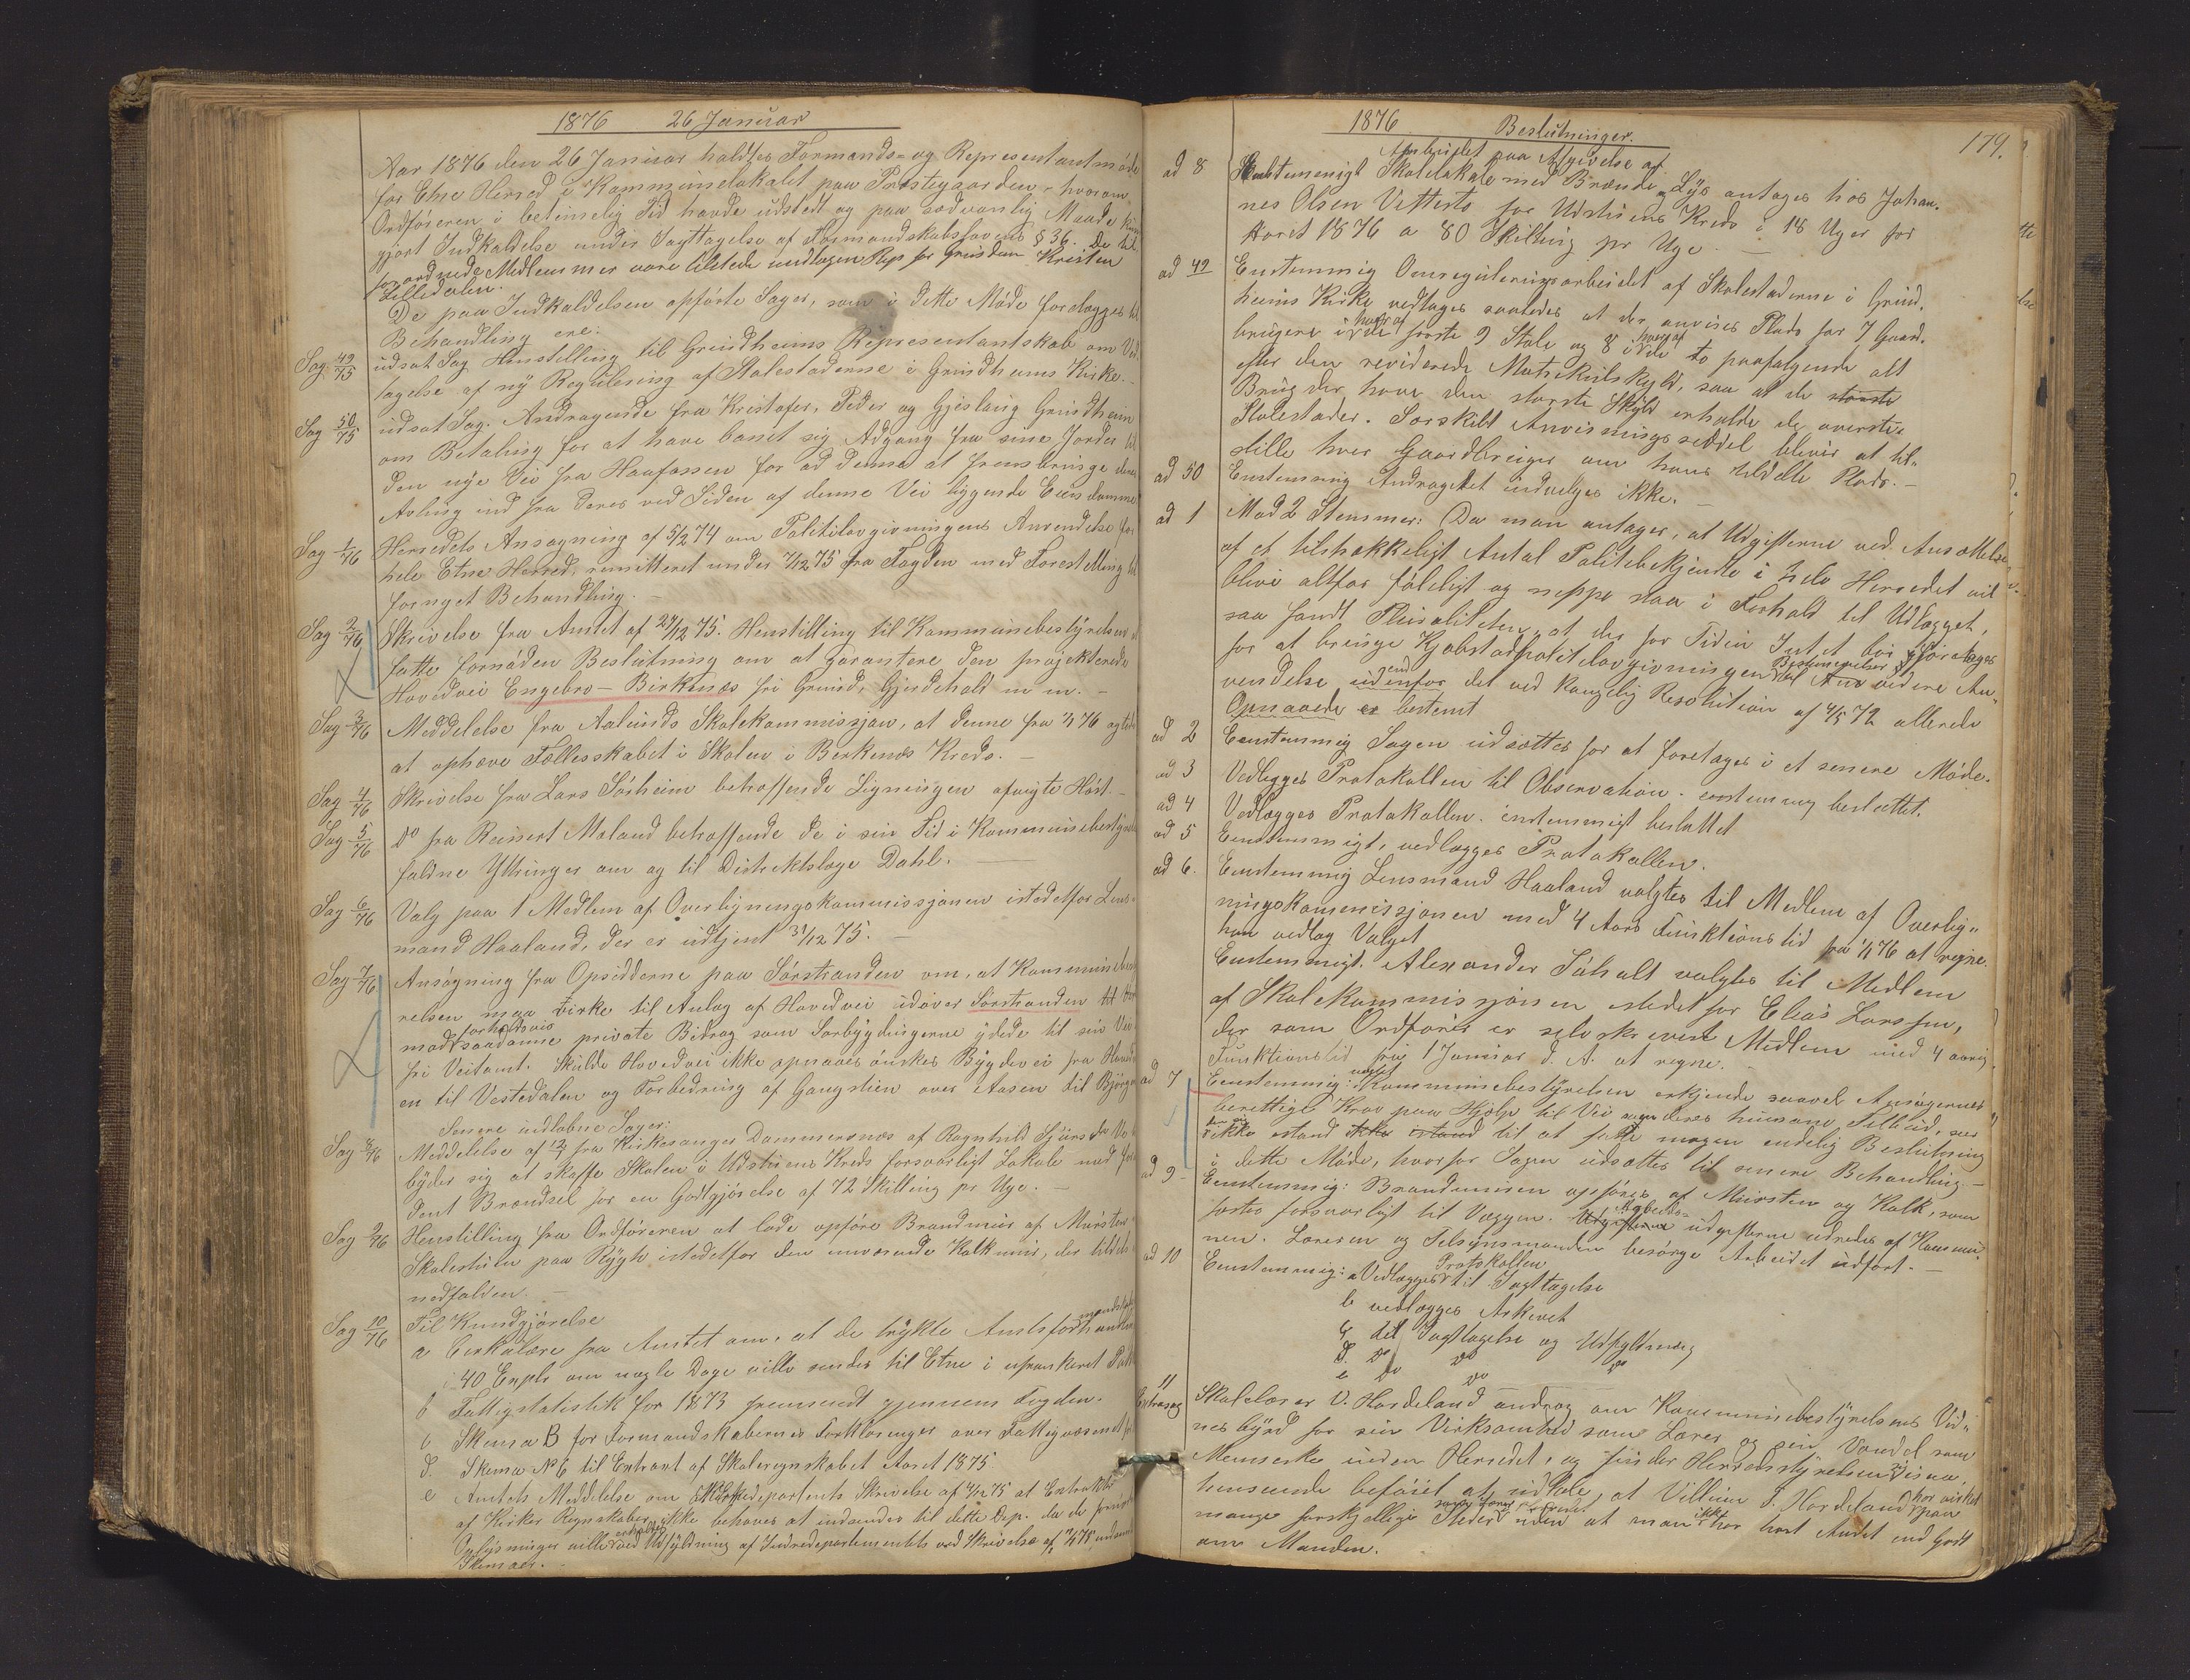 1876 26 Januar
Aar 1876 den 26 Januar holdtes Formands- og Representantmøde
for Etne Herred i Kommunelokalet paa Præstegaarden, hvorom
Ordføreren i betimelig Tid havde udstedt og paa sædvanlig Maade
gjort Indkaldelse under Iagttagelse af Formandskabslovens § 36. De
forordnede Medlemmer vare tilstede undtagen Rep for Grindheim Kristen
Lilledalen.
De paa Indkaldelsen opførte Sager, som i dette Møde forelægges til
Behandling ere:
Sag 49/75 udsat Sag Henstilling til Grindheims Representantskab om Ved
tagelse af ny Regulering af Stolestaderne i Grindheims Kirke.
Sag 50/75 udsat Sag. Andragende fra Kristofer, Peder og Gjeslaug Grindheim
om Betaling for at have banet sig Adgang fra sine Jorder til
den nye Vei fra Haafassen for ad denne at frembringe deres
Avling ind fra deres ved Siden af denne Vei liggende Eiendomme
Sag 1/76 Herredets Ansøgning af 5/2 74 om Politilovgivningens Anvendelse for
hele Etne Herred, remitteret under 7/12 75 fra Fogden med Forestilling til
fornyet Behandling. –
Sag 2/76 Skrivelse fra Amtet af 29/12 75. Henstilling til Kommunebestyrelsen at
fatte fornøden Beslutning om at garantere den projekterede
Hovedvei Engebro – Birkenæs fri Grund, Gjerdehold m m. –
Sag 3/76 Meddelelse fra Aalunds Skolekommissjon, at denne fra 1/1 76 agter
at ophæve Fællesskabet i Skolen i Berkenæs Kreds. –
Sag 4/76 Skrivelse fra Lars Sørheim betreffende Ligningen afvigte Høst. –
Sag 5/76 do fra Reinert Moland betreffende de i sin Tid i Kommunebestyrelsen
faldne Yttringer om og til Distriktslæge Dahl. –
Sag 6/76 Valg paa 1 Medlem af Overligningskommissjonen istedetfor Lens-
mand Haaland, der er udtjent 31/12 75. –
Sag 7/76 Ansøgning fra Opsidderne paa Sørstranden om, at Kommunebesty
relsen maa virke til Anlæg af Hovedvei udover Sørstranden
mod forholdsvis saadanne private Bidrag som Sørbygdingerne ydede til sin Vei
fri Veitomt. Skulde Hovedvei ikke opnaaes ønskes Bygdevei fra
en til Vestedalen og Forbedring af Gangstien over Aasen til
Senere indløbne Sager:
Sag 8/76 Meddelelse af fra Kirkesanger Dommersnæs af Ragnhild
byder sig at skaffe Skolen i Udstrens Kreds forsvarligt Lokale med
dent Brændsel for en Godtgjørelse af 72 Skilling pr Uge. –
Sag 9/76 Henstilling fra Ordføreren at lade opføre Brandmur af Mursten
Skolestuen paa Rygh istedetfor den nuværende Kalkmur, der tildels
nedfalden. –
Sag 10/76 Til Kundgjørelse
a Cirkulære fra Amtet om, at de trykte Amtsformandskabs
i 40 Expl om nogle Dage ville sendes til Etne i ufrankeret Pakke
b Fattigstatistik for 1873 fremsendt gjennem Fogden.
c Skema B for Formandskabernes Forklaringer over Fattigvæsenet
d. Skema No 6 til Extrakt af Skoleregnskabet Aaret 1875
e Amtets Meddelelse om Kirkedepartements Skrivelse af 4/12 75 at Extrakter
af Kirkes Regnskaber ikke behøves at indsendes til dette Dep. da de fornødne
Oplysninger ville erholdes ved Udfyldning af Indredepartementets ved Skrivelse af
Skemaer. –
1876 Beslutninger. 179.
ad 8 Enstemmigt Anbudet paa Afgivelse af Skolelokale med Brænde og Lys antages hos Johan-
nes Olsen Vetterto for Udstrens Kreds i 18 Uger for
Aaret 1876 a 80 Skilling pr Uge. –
ad 49 Enstemmig Omreguleringsarbeidet af Skolestaderne i Grind-
heims Kirke vedtages saaledes at der anvises Plads for 7 Gaard-
brugere i hver af de første 9 Stole og 8 i hver af de to paafølgende alt
efter den reviderede Matrikulskyld, saa at de største
Brug der have den største Skyld erholde de øverste
Stolestader. Særskilt Anvisningsseddel bliver at til-
stille hver Gaardbruger om hans tildelte Plads. –
ad 50 Enstemmig Andraget indvilges ikke. –
ad 1 Mod 2 Stemmer: Da man antager, at Udgifterne ved Ansættelse
af et tilstrækkeligt Antal Politibetjente i hele Herredet vil
blive altfor føleligt og neppe staa i Forhold til Udlægget,
saa fandt Pluraliteten, at der for Tiden Intet bør foretages
for at bringe Kjøbstadpolitilovgivningen Bestemmelser til videre An-
vendelse udenfor end det ved Kongelig Resolution af 4/5 72 allerede
Opnaaede er bestemt
ad 2 Eenstemmig Sagen udsættes for at foretages i et senere Møde.
ad 3 Vedlægges Protokollen til Observation. enstemmig besluttet.
ad 4 Vedlægges Protokollen. enstemmigt besluttet
ad 5 Eenstemmigt, vedlægges Protokollen.
ad 6. Enstemmig Lensmand Haaland valgtes til Medlem af Overlig-
ningskommissjonen med 4 Aars Funktionstid fra 1/1 76 at regne.
han vedtog Valget
Enstemmigt. Alexander Tøholt valgtes til Medlem
af Skolekommissjonen istedetfor Elias Larssen,
der som Ordfører er selvskrevent Medlem med 4 aarig
Funktionstid fra 1 Januar d. A. at regne. –
ad 7 Eenstemmig: Kommunebestyrelsen erkjende saavel Ansøgernes
berettige Krav paa Hjælp til Vei som deres humane Tilbud, sees
ikke istand ikke istand til at fatte nogen endelig Beslutning
i dette Møde, hvorfor Sagen udsættes til senere Behandling. –
ad 9 Eenstemmig: Brandmuren opføres af Mursten og Kalk, som
fæstes forsvarligt til Væggen. Arbeids- Udgifterne udgifterne udredes af Kommu-
nen. Læreren og Tilsynsmanden besørge Arbeidet udført. –
ad 10 Eenstemmig: a Vedlægges Protokollen til Iagttagelse
b vedlægges Arkivet
c til Iagttagelse og Udfyldning
d. do do do
e do do
11
Extrasag Skolelærer V. Hordeland androg om Kommunebestyrelsens Vid-
nesbyrd for sin Virksomhed som Lærer og sin Vandel som
Menneske inden Herredet, og finder Herredsstyrelsen sig i saa
henseende beføiet at udtale, at Villum T. Hordeland har virket paa
mange forskjellige Steder som Lærer i Herredet uden at man ikke har hørt Andet end Godt
om Manden.